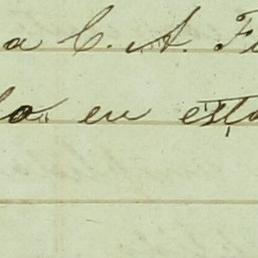 a C. A. F
lo en esta